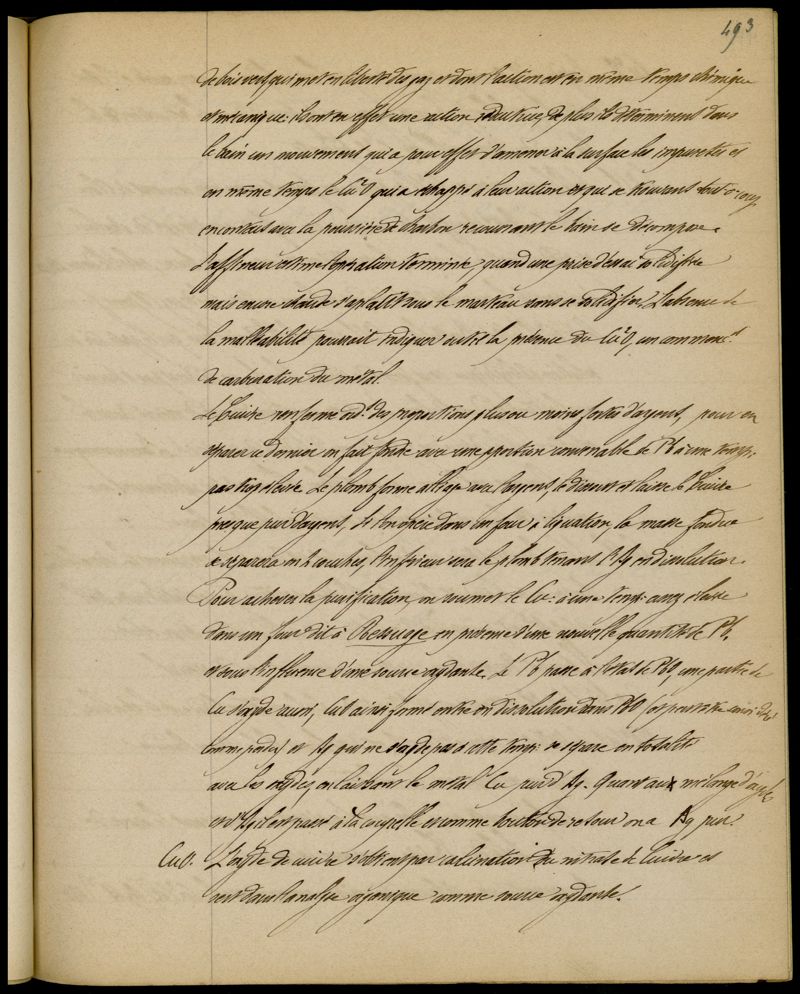 493
de bois vert qui met en liberté des gaz et dont l'action est en même temps chimique
et mécanique. Ils ont en effet une action réductrice, de plus ils déterminent dans
le bain un mouvement qui a pour effet d'amener à la surface les impuretés et
en même temps le Cu²O qui a échappé à leur action et qui se trouvant tout à coup
en contact avec la poussière de charbon recouvrant le bain se décompose.
L'affineur estime l'opération terminée, quand une prise d'essai solidifiée
mais encore chaude s'aplatit sous le marteau sans se L'absence de
la malléabilité pourrait indiquer outre la présence du Cu²O, un commenct
de carburation du métal.
Le Cuivre renferme ordt des proportions plus ou moins fortes d'argent, pour en
séparer ce dernier on fait fondre avec une proportion convenable de Pb à une temp:
pas trop élevée. Le plomb forme alliage avec l'argent, le dissout et laisse le Cuivre
presque pur d'argent, Si l'on opère dans un four à liquation, la masse fondue
se séparera en 2 couches, l'inférieure sera le plomb tenant l'Ag en dissolution.
Pour achever la purification, on soumet le Cu: à une temp: assez élevée
dans un four dit à Ressuage en présence d'une nouvelle quantité de Pb,
et sous l'influence d'une source oxydante. Le Pb passe à l'état de PbO, une partie de
Cu s'oxyde aussi, CuO ainsi formé entre en dissolution dans PbO
comme perdu) et Ag qui ne s'oxyde pas à cette temp: se sépare en totalité
avec les oxydes en laissant le métal Cu pur d'Ag. Quant au mélange d'oxydes
et d'Ag il est passé à la coupelle et comme bouton de retour on a Ag pur.
CuO. L'oxyde de cuivre s'obtient par calcination du nitrate de Cuivre et
sert dans l'analyse organique comme source oxydante.